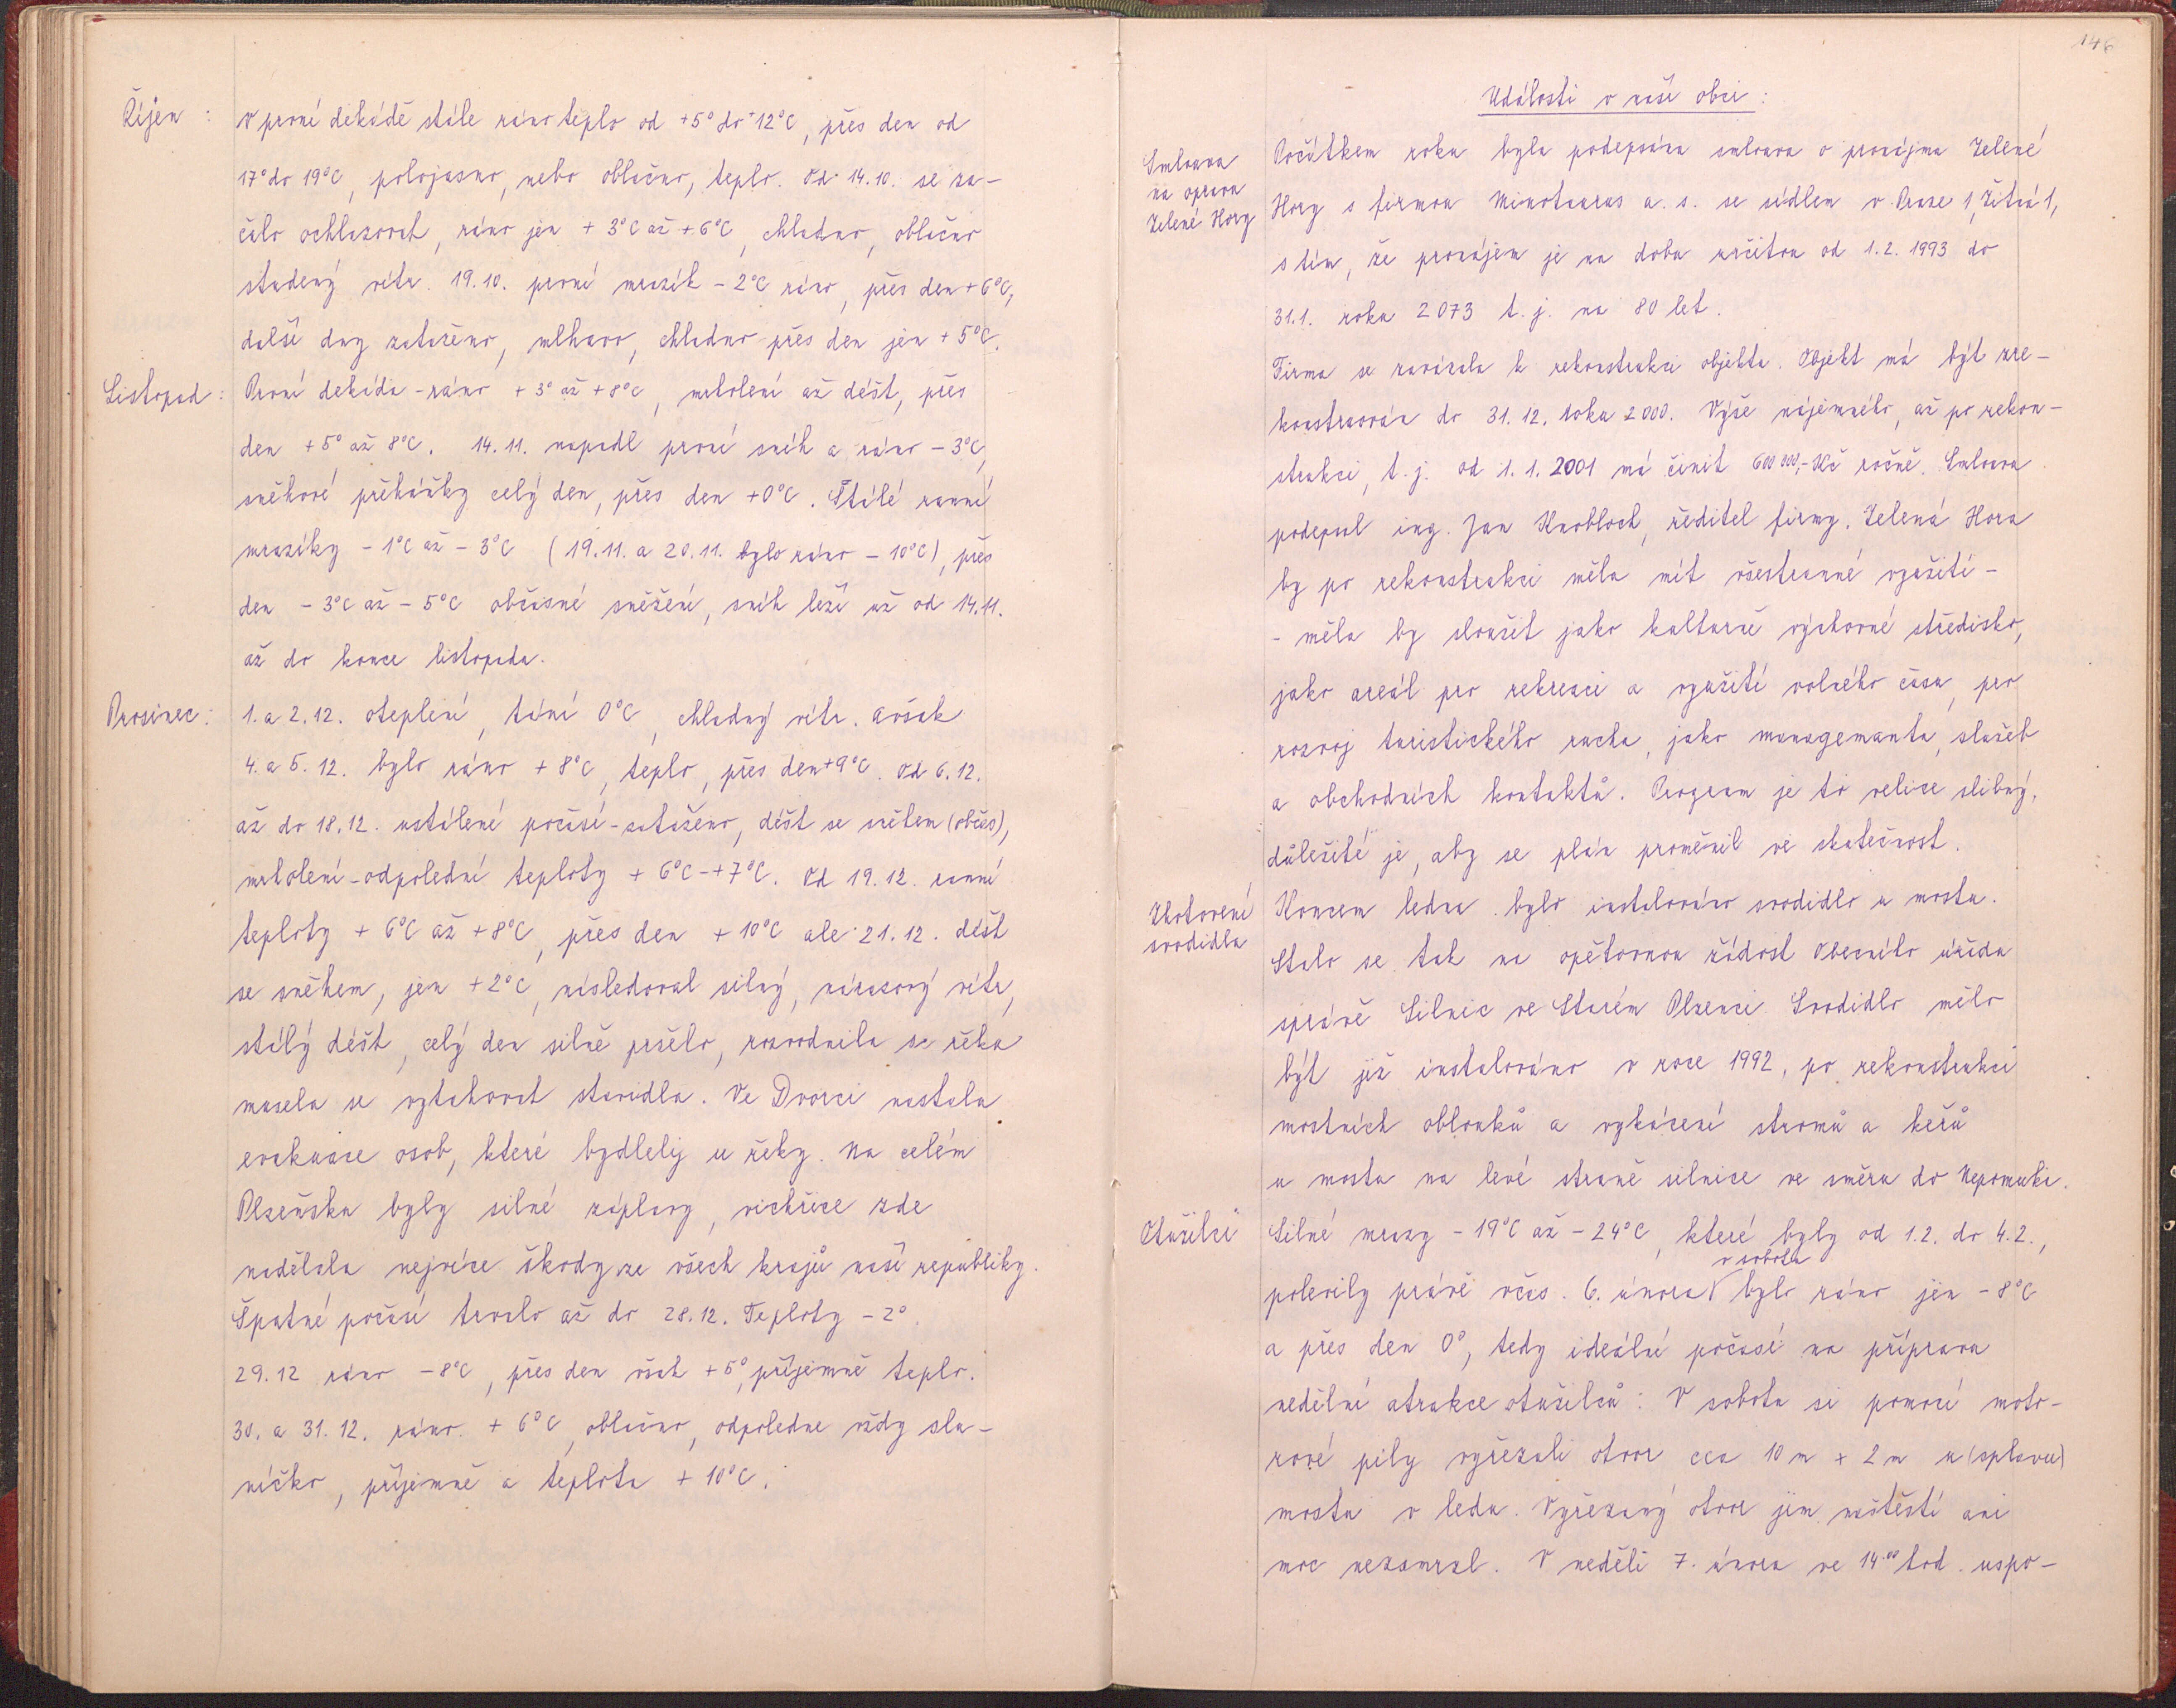 Říjen :
V první dekádě stále ráno teplo od +5° do +12°C, přes den od
17° do 19°C, polojasno, nebo oblačno, teplo. Od 14.10. se za-
čalo ochlazovat, ráno jen + 3°C až + 6°C, chladno, oblačno
studený vítr. 19.10. první mrazík - 2°C ráno, přes den + 6°C,
další dny zataženo, mlhavo, chladno přes den jen + 5°C.
Listopad :
První dekáda - ráno + 3° až + 8°C, mrholení až déšt, přes
den +5° až 8°C. 14.11. napadl první sníh a ráno - 3°C,
sněhové přeháňky celý den, přes den +0°C. Stálé ranní
mrazíky - 1°C až - 3°C (19.11. a 20.11. bylo ráno - 10°C), přes
den - 3°C až - 5°C občasné sněžení, sníh leží už od 14.11.
až do konce listopadu.
Prosinec :
1. a 2.12. oteplení, tání 0°C, chladný vítr. avšak
4. a 5. 12. bylo ráno + 8°C, teplo, přes den +9°C. Od 6.12.
až do 18.12. ustálené počasí - zataženo, déšt se sněhem (občas),
mrholení - odpolední teploty + 6°C - +7°C. Od 19.12. ranní
teploty + 6°C až +8°C, přes den + 10°C ale 21.12. déšt
se sněhem, jen +2°C, následoval silný, nárazový vítr,
stálý déšt, celý den silně pršelo, rozvodnila se řeka
musela se vytahovat stavidla. Ve Dvorci nastala
evakuace osob, které bydlely u řeky. Na celém
Plzeňsku byly silné záplavy, vichřice zde
nadělala nejvíce škody ze všech krajů naší republiky.
Špatné počasí trvalo až do 28.12. Teploty - 2°.
29.12 ráno - 8°C, přes den však + 5°, příjemně teplo.
30. a 31. 12. ráno + 6°C, oblačno, odpoledne vždy slu-
níčko, příjemně a teplota + 10°C.
146
Události v naší obci :
Smlouva
na opravu
Zelené Hory
Počátkem roku byla podepsána smlouva o pronájmu Zelené
Hory s firmou Minotaurus a. s. se sídlem v Praze 1, Žitná 1,
s tím, že pronájem je na dobu určitou od 1.2. 1993 do
31.1. roku 2073 t. j. na 80 let.
Firma se zavázala k rekonstrukci objektu. Objekt má být zre-
konstruován do 31. 12. roku 2000. Výše nájemného, až po rekon-
strukci, t. j. od 1. 1. 2001 má činit 600 000,- Kč ročně. Smlouvu
podepsal ing. Jan Knobloch, ředitel firmy. Zelená Hora
by po rekonstrukci měla mít všestranné využití -
- měla by sloužit jako kulturně výchovné středisko,
jako areál pro rekreaci a využití volného času, pro
rozvoj turistického ruchu, jako managementu, služeb
a obchodních kontaktů. Program je to velice slibný,
důležité je, aby se plán proměnil ve skutečnost.
Zhotovení
svodidla
Koncem ledna bylo instalováno svodidlo u mostu.
Stalo se tak na opětovnou žádost Obecního úřadu
správě Silnic ve Starém Plzenci. Svodidlo mělo
být již instalováno v roce 1992, po rekonstrukci
mostních oblouků a vykácení stromů a keřů
u mostu na levé straně silnice ve směru do Nepomuku.
Otužilci
Silné mrazy - 19°C až - 24°C, které byly od 1.2. do 4.2.,
v sobotu
polevily právě včas. 6. února bylo ráno jen - 8°C
a přes den 0°, tedy ideální počasí na přípravu
nedělní atrakce otužilců : V sobotu si pomocí moto-
rové pily vyřezali otvor cca 10 m x 2 m u (splavu)
mostu v ledu. Vyřezaný otvor jim naštěstí ani
moc nezamrzl. V neděli 7. února ve 14.00 hod. uspo-